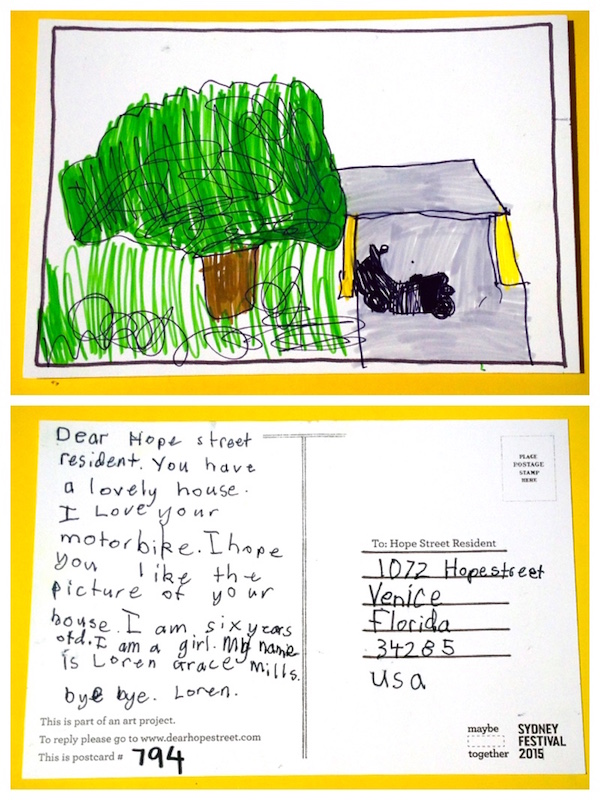 Dear Hope street
resident. You have
a lovely house.
I Love your
motorbike. I hope
you like the
picture of your
house. I am six years
old. I am a girl. My name
is Loren Grace Mills.
bye bye. Loren.
This is part of an art project.
To reply please go to www.dearhopestreet.com
This is postcard # 794
PLACE
POSTAGE
STAMP
HERE
To: Hope Street Resident
1072 Hopestreet
Venice
Florida
34285
usa
maybe
together
SYDNEY
FESTIVAL
2015